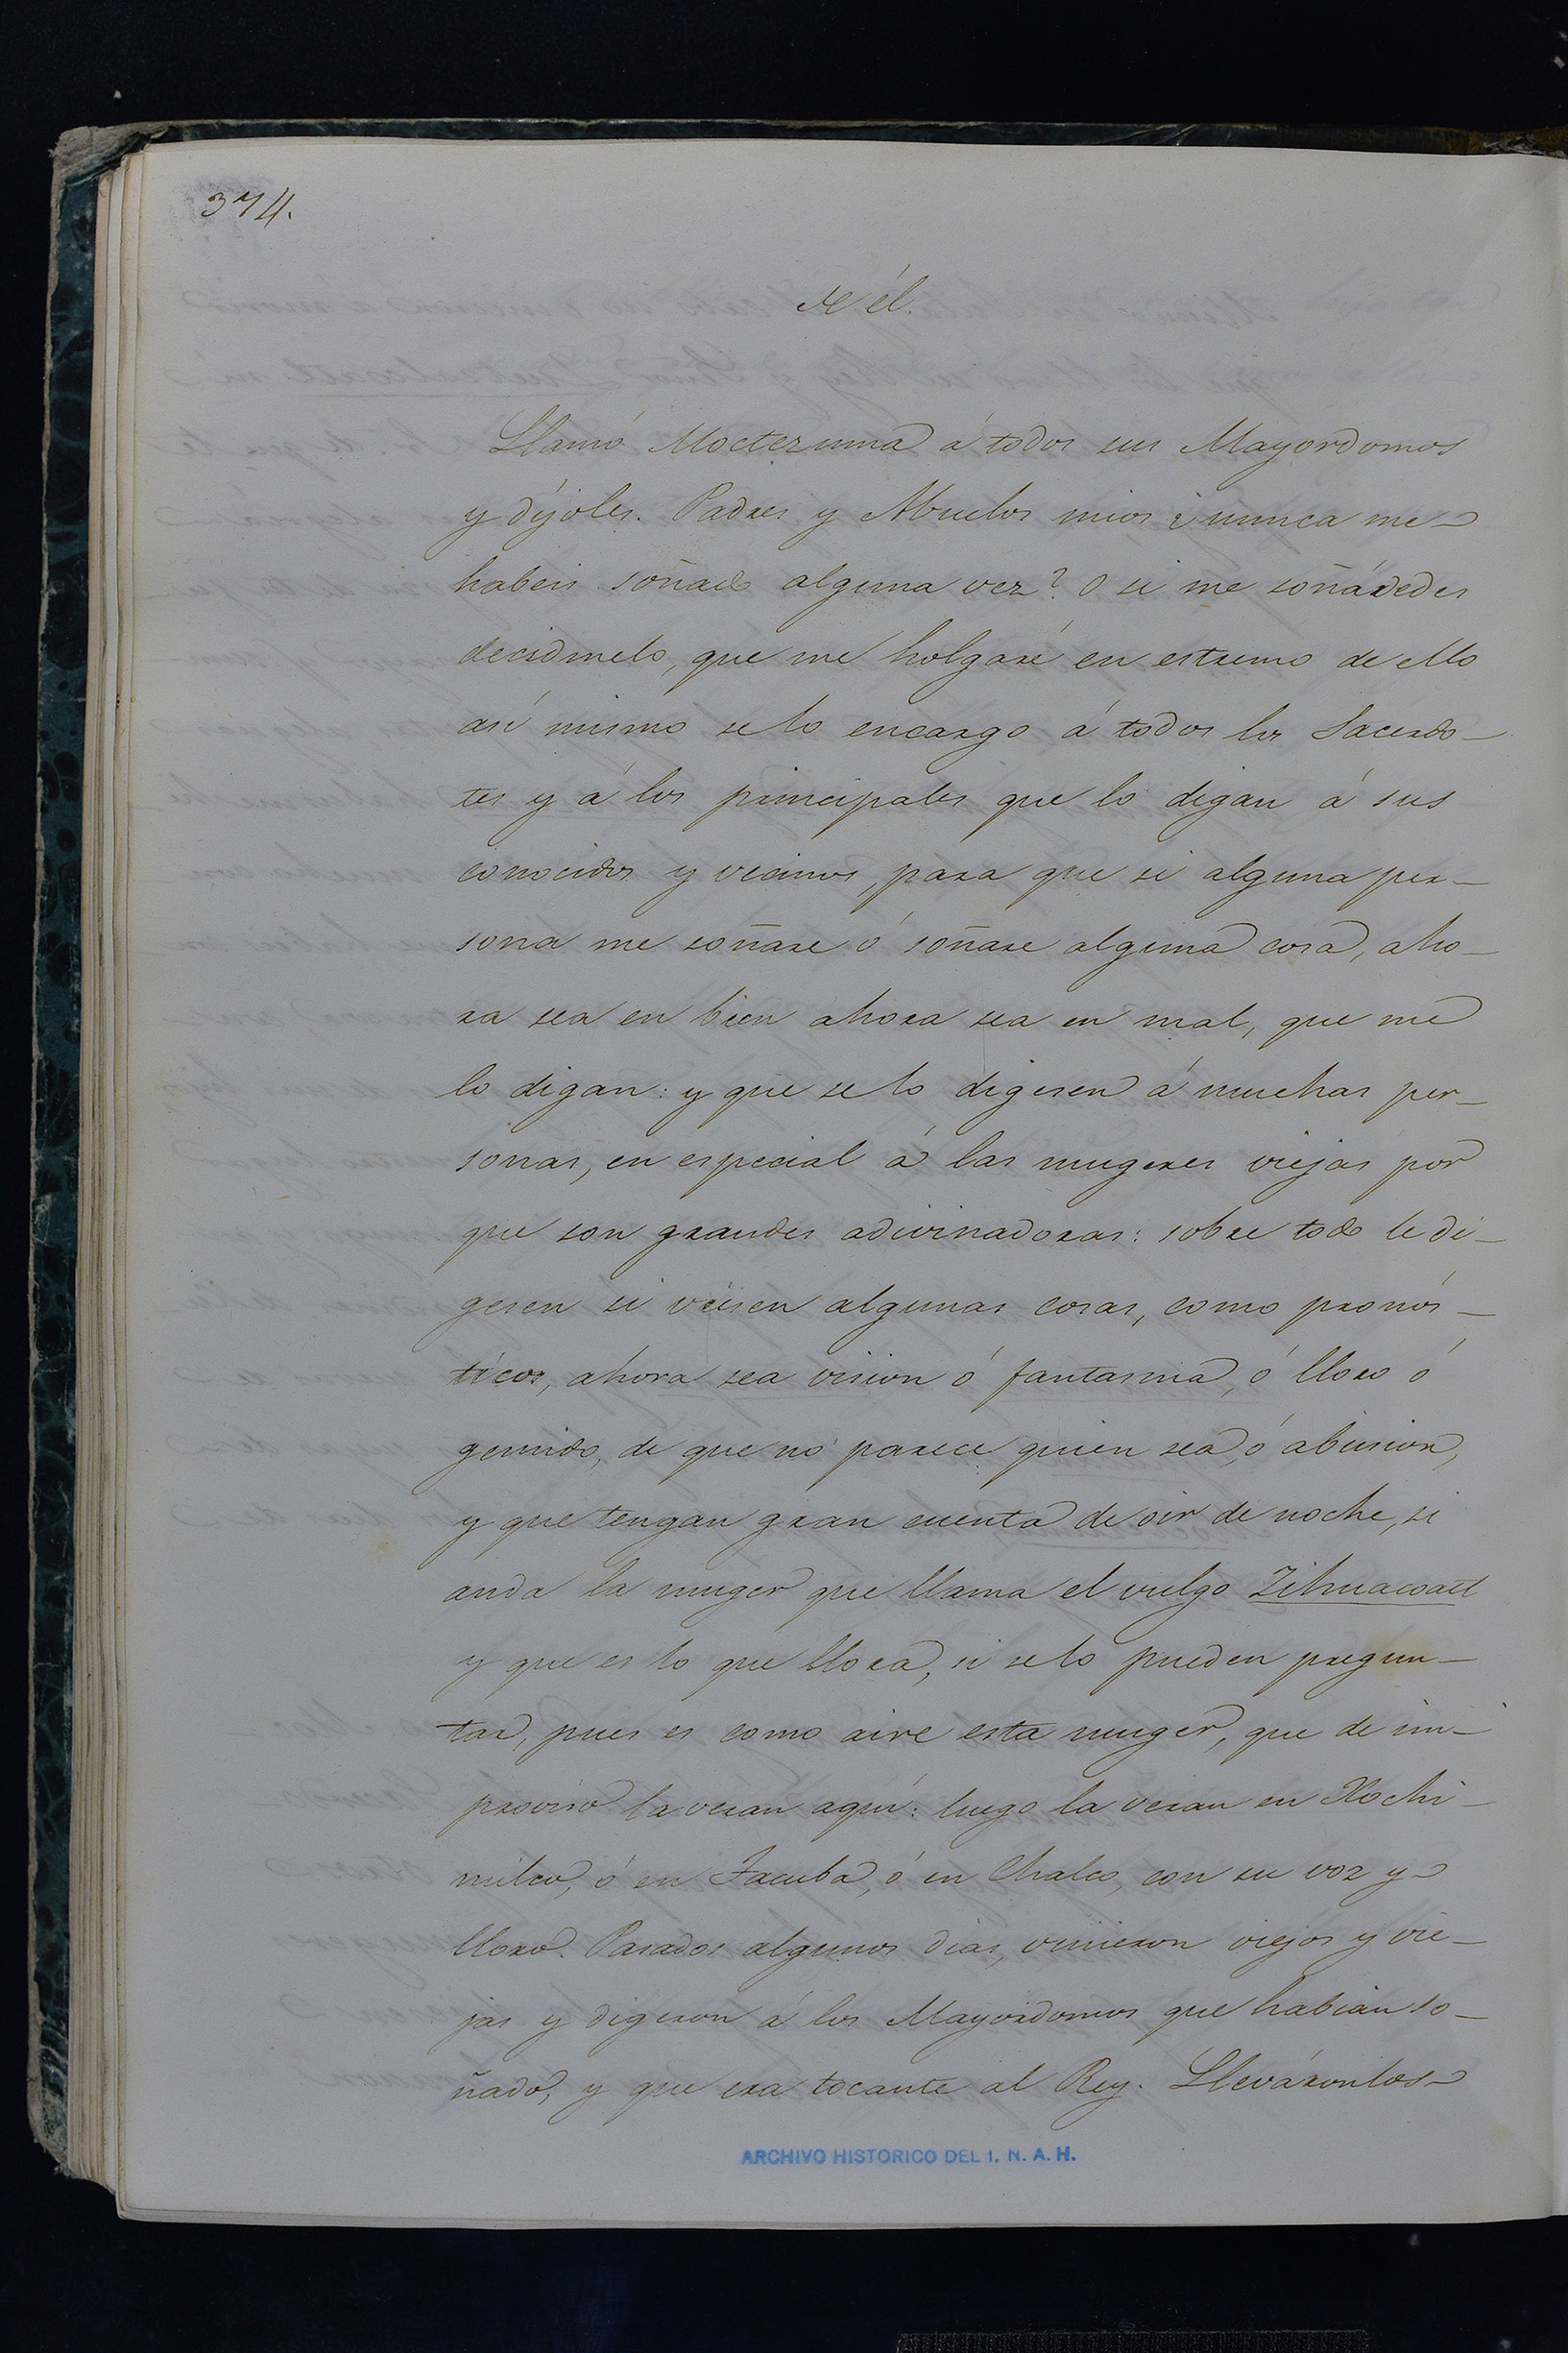 374.
de él.
Llamó Moctezuma á todos sus Mayordomos
y díjoles. Padres y Abuelos mios ¿nunca me
habeis soñado alguna vez? O si me soñáredes
decidmelo, que me holgaré en estremo de ello
asi mismo se lo encargo á todos los Sacerdo-
tes y á los principales que lo digan á sus
conocidos y vecinos, para que si alguna per-
sona me soñare ó soñare alguna cosa, aho-
ra sea en bien ahora sea en mal, que me
lo digan: y que se lo digesen á muchas per-
sonas, en especial á las mugeres viejas por
que son grandes adivinadoras: sobre todo le di-
gesen si viesen algunas cosas, como pronós-
ticos, ahora sea vision ó fantasma, ó lloro ó
gemido, de que no parece quien sea, ó abusion,
y que tengan gran cuenta de oir de noche, si
anda la muger que llama el vulgo Zihuacoatl
y que es lo que llora, si se lo pueden pregun-
tar, pues es como aire esta muger, que de im-
proviso la veran aqui: luego la veran en Xochi-
milco, ó en Tacuba, ó en Chalco, con su voz y
lloro. Pasados algunos dias, vinieron viejos y vie-
jas y digeron á los Mayordomos que habian so-
ñado, y que era tocante al Rey. Lleváronlos
ARCHIVO HISTORICO DEL I. N. A. H.